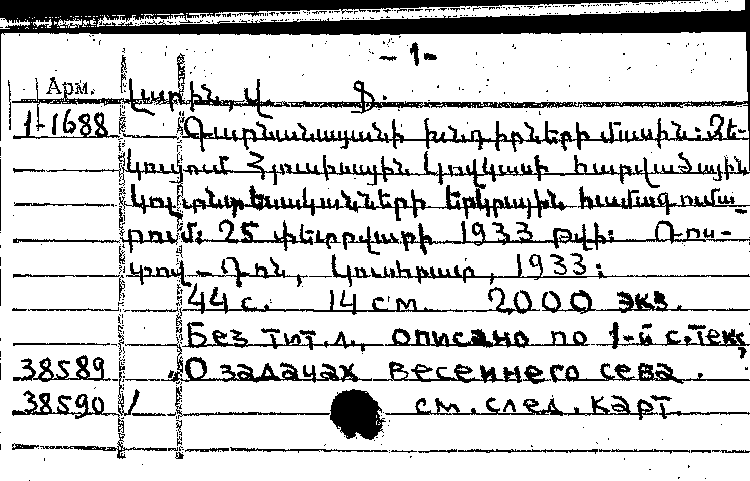 - 1 -
Арм. Լարին, Վ. Ֆ.
1-1688 Գարնանացանի խնդիրների մասին: Զե-
կուցում Հյուսիսային Կովկասի հարվածային
կոլտնտեսականների երկրային համագումա-
րում: 25 փետրվարի 1933 թվի: Ռոս-
տով – Դոն, Կուսհրատ, 1933:
44 с. 14 см. 2000 экз.
Без тит. л., описано по 1-й с. текс.
38589 "О задачах весеннего сева.
38590 / см. след. карт.